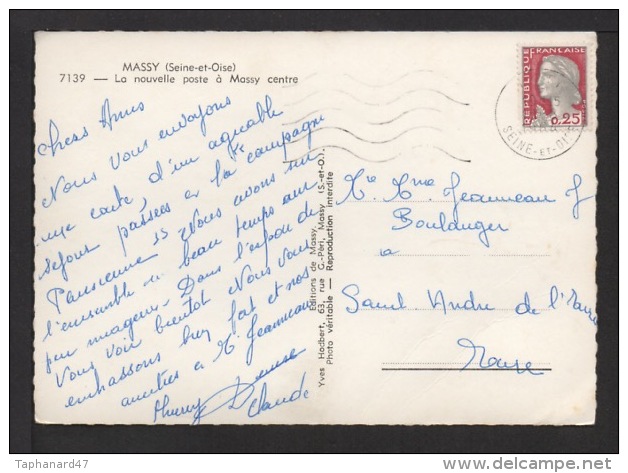 MASSY (Seine-et-Oise)
7139 — La nouvelle poste à Massy centre
Chers Amis
Nous vous envoyons
une carte, d'un agréable
sejour passées a la campagne
Parisienne. Nous avons sur
l'ensemble un beau temps un
peu nuageux. Dans l'espoir de
Vous voir bientôt Nous Vous
embrassons bien fort et nos
amitiées a M. Jeanneau
Thierry Denise
Claude
Editions de Massy,
Yves Hodbert, 63, rue G.-Péri, Massy (S.-et-O.)
Photo véritable - Reproduction interdite
REPUBLIQUE FRANÇAISE
0,25
SEINE-ET-OISE
Mr Mme Jeanneau J
Boulanger
a
Saint Andre de l'Eure
Taphanard47
delcampe.net